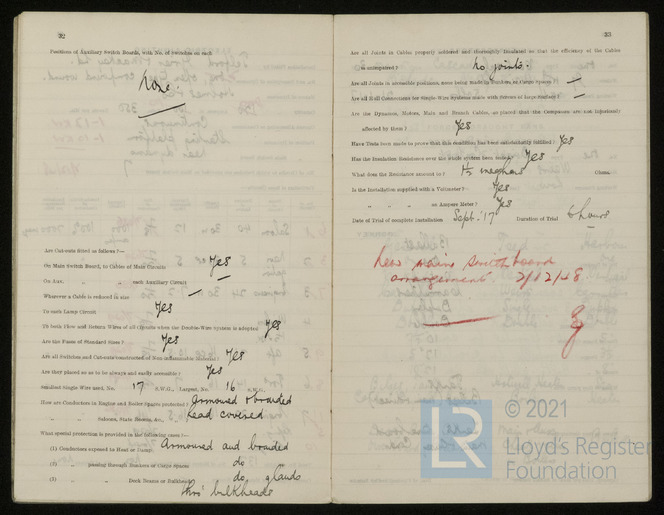 32
Positions of Auxiliary Switch Boards, with No. of Switches on each
None.
Are Cut-outs fitted as follows?—
On Main Switch Board, to Cables of Main Circuits Yes
On Aux. „ „ each Auxiliary Circuit —
Wherever a Cable is reduced in size —
To each Lamp Circuit Yes
To both Flow and Return Wires of all Circuits when the Double-Wire system is adopted Yes
Are the Fuses of Standard Sizes? Yes
Are all Switches and Cut-outs constructed of Non-inflammable Material? Yes
Are they placed so as to be always and easily accessible? Yes
Smallest Single Wire used, No. 17 S.W.G., Largest, No. 16 S.W.G.
How are Conductors in Engine and Boiler Spaces protected? Armoured & braided
„ „ Saloons, State Rooms, &c., „ Lead covered
What special protection is provided in the following cases?—
(1) Conductors exposed to Heat or Damp Armoured and braided
(2) „ passing through Bunkers or Cargo Spaces do
(3) „ „ Deck Beams or Bulkheads do glands
thro' bulkheads
33
Are all Joints in Cables properly soldered and thoroughly insulated so that the efficiency of the Cables
is unimpaired? No joints.
Are all Joints in accessible positions, none being made in Bunkers or Cargo Spaces? —
Are all Hull Connections for Single-Wire Systems made with Screws of large Surface? —
Are the Dynamos, Motors, Main and Branch Cables, so placed that the Compasses are not injuriously
affected by them? Yes
Have Tests been made to prove that this condition has been satisfactorily fulfilled? Yes
Has the Insulation Resistance over the whole system been tested? Yes
What does the Resistance amount to? 1½ megohms Ohms.
Is the Installation supplied with a Voltmeter? Yes
„ „ „ an Ampere Meter? Yes
Date of Trial of complete Installation Sept. '17 Duration of Trial 6 hours
New main switchboard
arrangement. 2/12/48
© 2021
LR
Lloyd's Register
Foundation